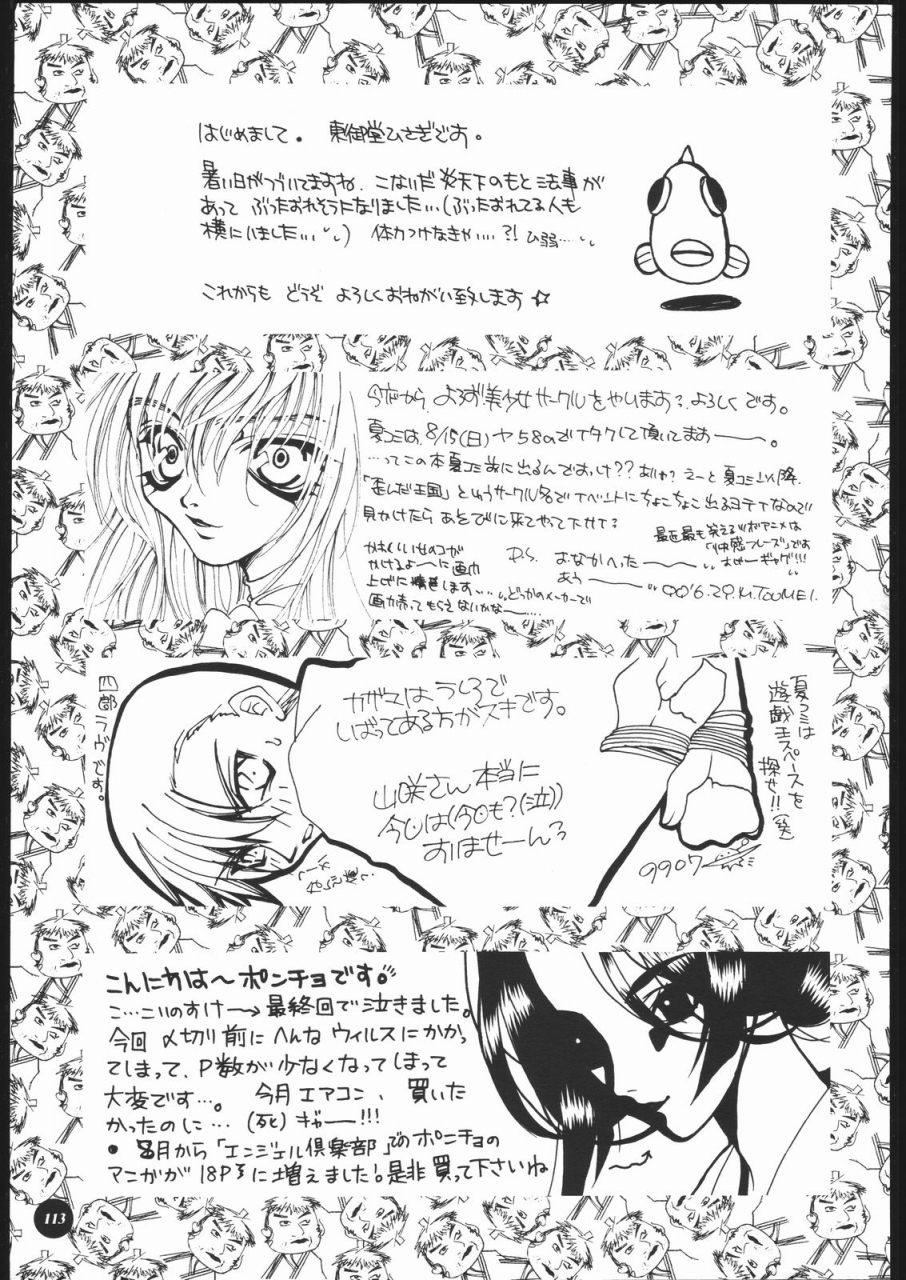 はじめまして。 東御堂ひさぎです。
暑い日がつづいてますね、こないだ炎天下のもと法事が
あって ぶったおれそうになりました…(ぶったおれてる人も
横にいました…) 体力つけなきゃ…?! ひ弱…
これからも どうぞ よろしくおねがい致します☆
今だから、よろず美少女サークルをやります?よろしくです。
夏コミは、8/15(日)ヤ58のでイタクして頂いてますーー。
…ってこの本夏コミ前に出るんですっけ??ありゃ?えーと夏コミ以降、
「歪んだ王国」というサークル名でイベントにちょこちょこ出るヨテイなので
見かけたらあそびに来てやって下せて?
最近最も笑えるアニメは
「快感フレーズ」です
ギャグ!!!
かけるよーに画力
上げに します…どっかのメーカーで
画力売ってもらえないかなー……
P.S. おなかへったーー
あうーー
'6.29.K.TOUMEI.
四郎ラヴです。
カガミはうしろで
しばってある方がスキです。
山咲さん本当に
今回は(今回も?(泣))
すいませーんっ
夏コミは
遊戯王スペースを
探せ!!(笑)
9907
こんにちは〜ポンチョです。
こ…こいのすけ→最終回で泣きました。
今回 〆切り前に へんな ウィルスにかかっ
てしまって、P数が少なくなってしまって
大変です…。 今月エアコン、買いた
かったのに…(死)ギャー!!!
• 8月から「エンジェル倶楽部」でのポンチョの
マンガが 18Pに増えました!是非買って下さいね
113